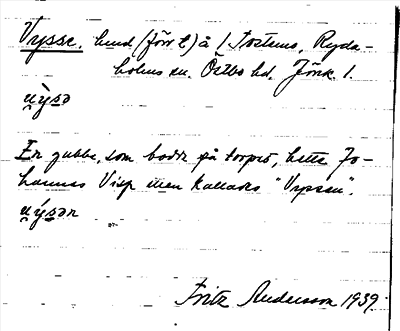 Vysse. lund (förr t) å 1 Tostens, Ryda-
holms sn. Östbo hd. Jönk. l.
v̀ysə
En gubbe, som bodde på torpet, hette Jo-
hannes Visp men kallades "Vyssen".
v́ysən
Fritz Andersson 1939.